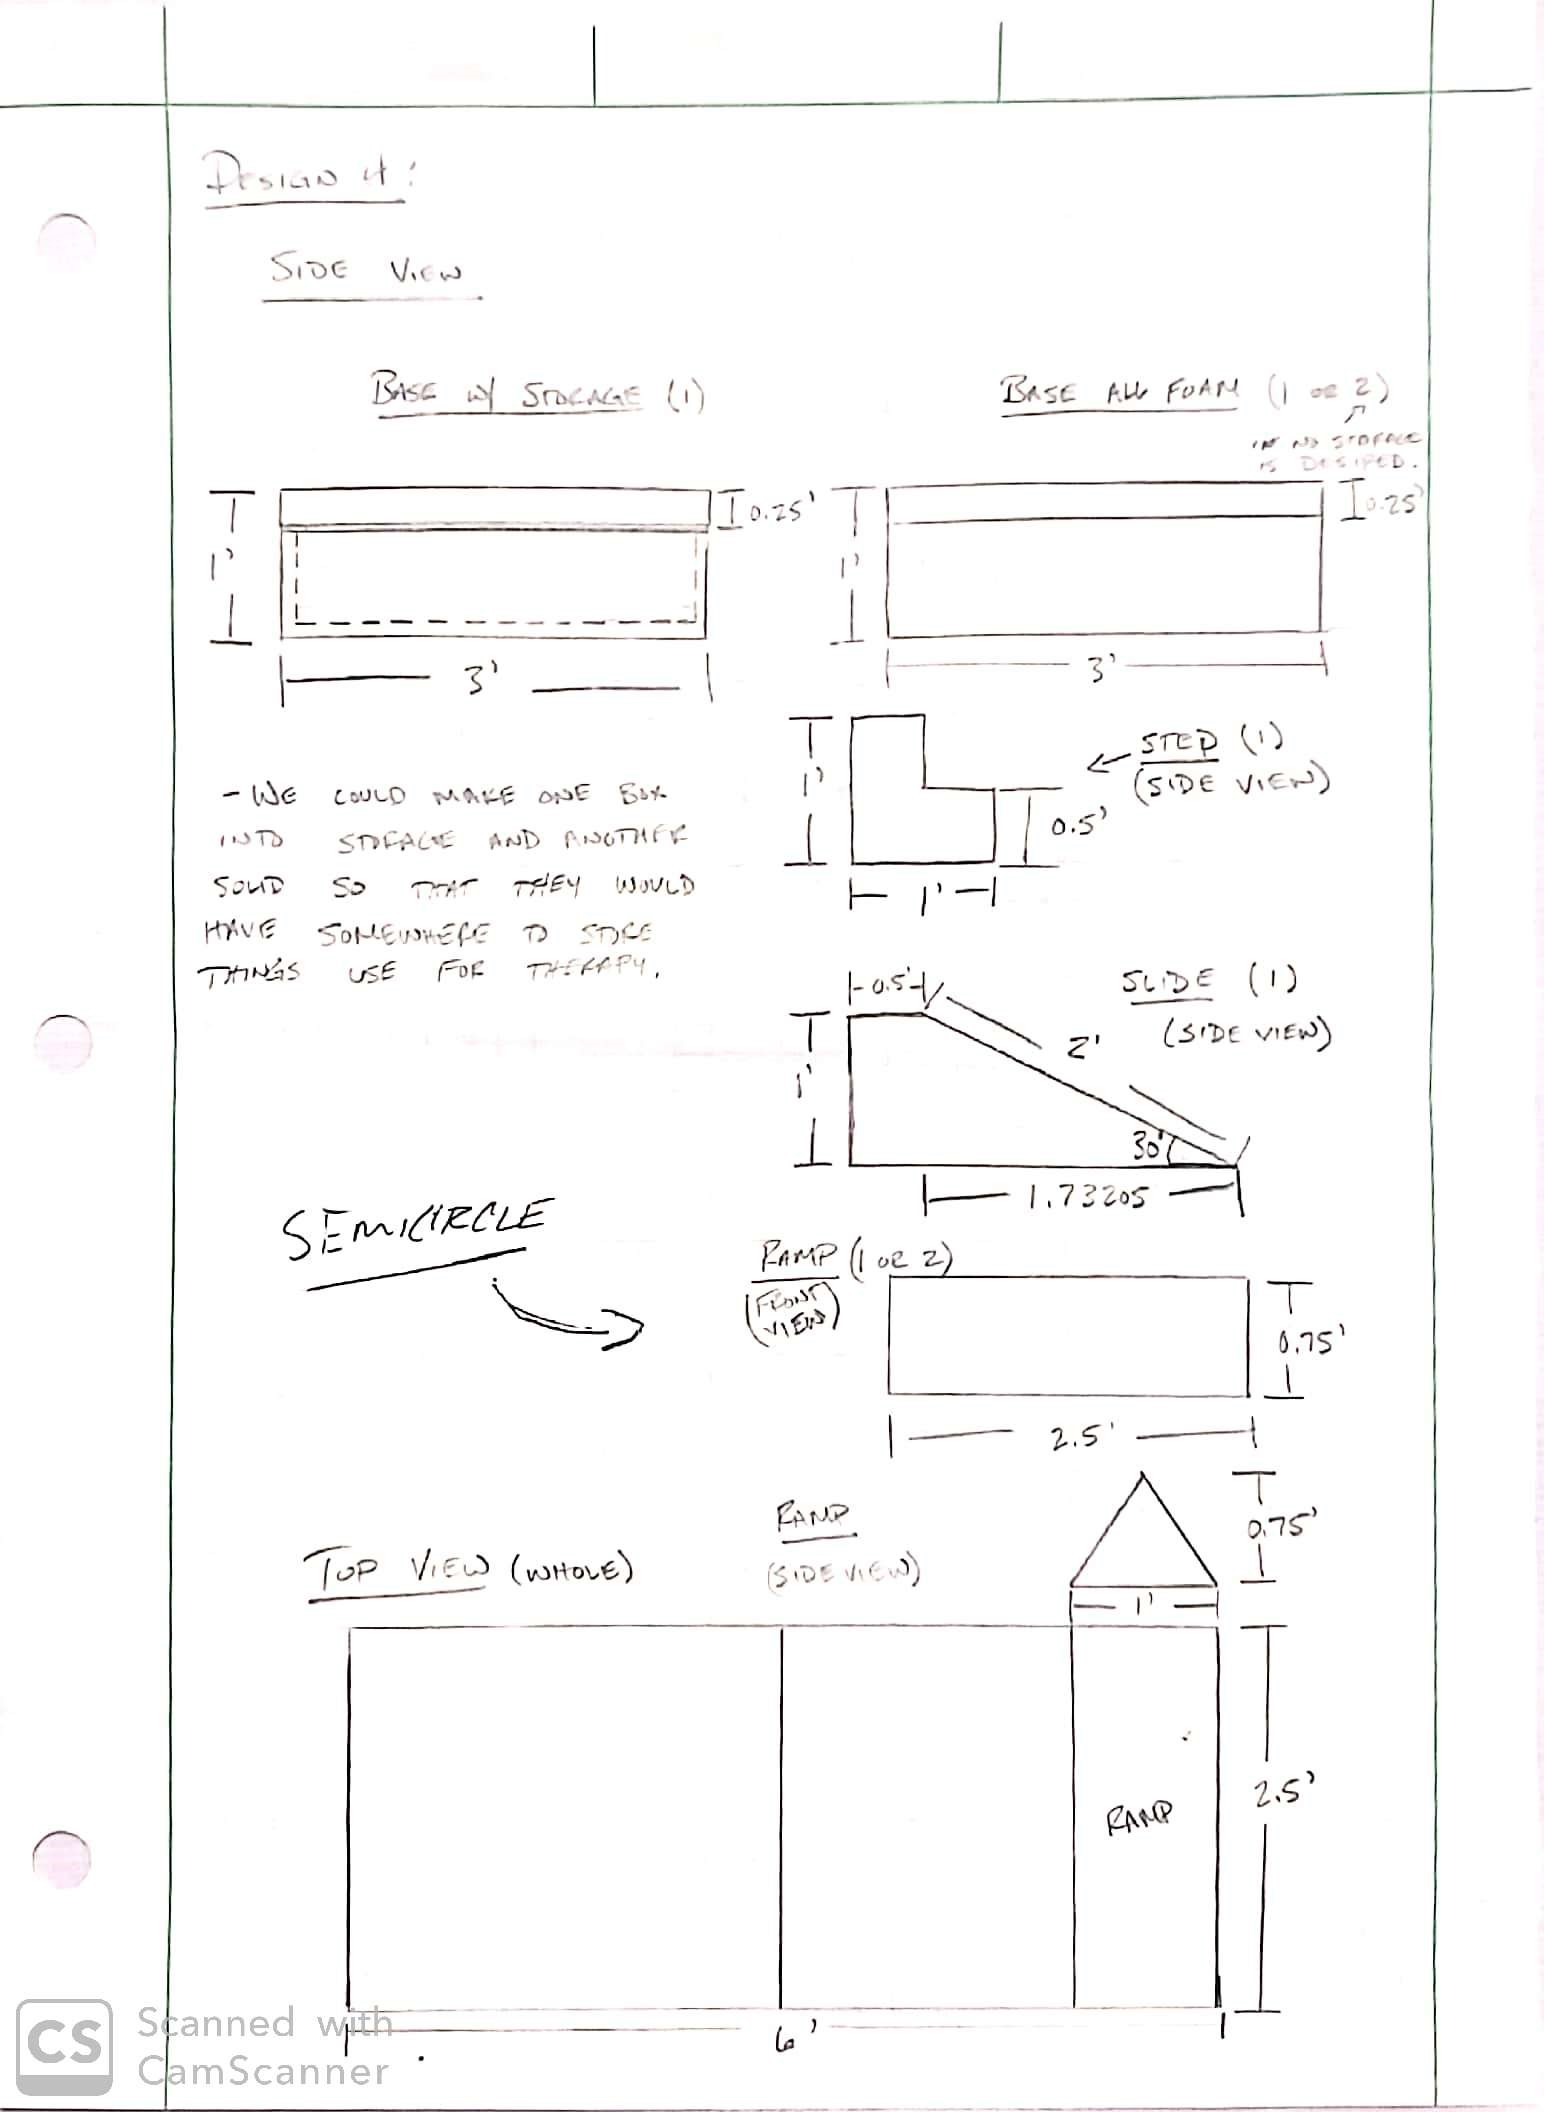 DESIGN 4:
SIDE VIEW
BASE W/ STORAGE (1)
BASE ALL FOAM (1 OR 2)
IF NO STORAGE
IS DESIRED.
1'
0.25'
3'
1'
0.25'
3'
- WE COULD MAKE ONE BOX
INTO STORAGE AND ANOTHER
SOLID SO THAT THEY WOULD
HAVE SOMEWHERE TO STORE
THINGS USE FOR THERAPY.
STEP (1)
(SIDE VIEW)
1'
0.5'
1'
SLIDE (1)
(SIDE VIEW)
0.5'
2'
1'
30°
1.73205
SEMICIRCLE
RAMP (1 OR 2)
(FRONT
VIEW)
0.75'
2.5'
RAMP
(SIDE VIEW)
0.75'
1'
TOP VIEW (WHOLE)
RAMP
2.5'
6'
CS
Scanned with
CamScanner